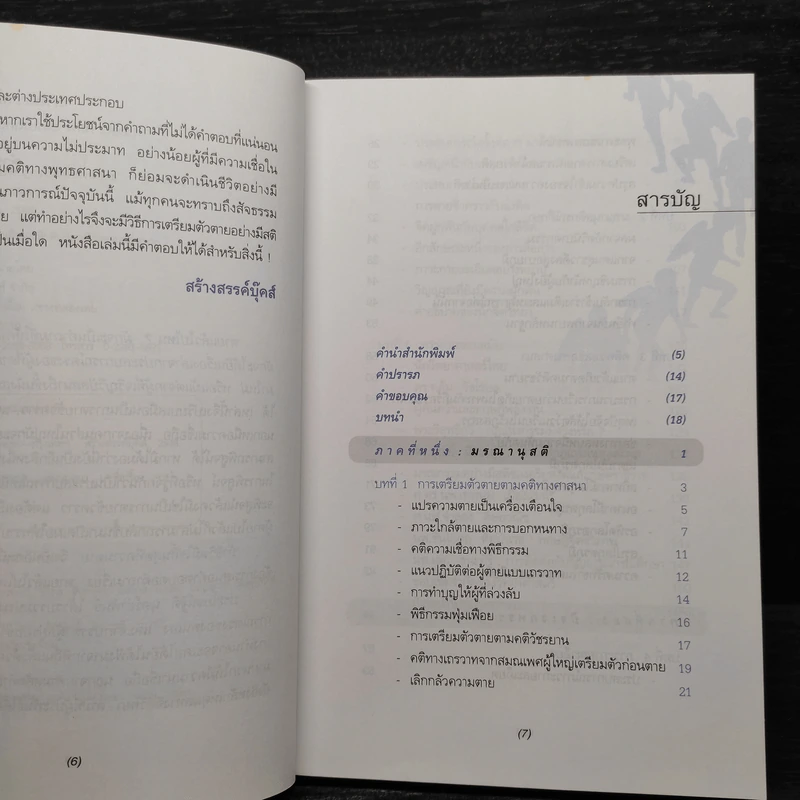 ละต่างประเทศประกอบ
หากเราใช้ประโยชน์จากคำถามที่ไม่ได้คำตอบที่แน่นอน
อยู่บนความไม่ประมาท อย่างน้อยผู้ที่มีความเชื่อใน
มคติทางพุทธศาสนา ก็ย่อมจะดำเนินชีวิตอย่างมี
ภาวการณ์ปัจจุบันนี้ แม้ทุกคนจะทราบถึงสัจธรรม
ย แต่ทำอย่างไรจึงจะมีวิธีการเตรียมตัวตายอย่างมีสติ
ป็นเมื่อใด หนังสือเล่มนี้มีคำตอบให้ได้สำหรับสิ่งนี้ !
สร้างสรรค์บุ๊คส์
(6)
สารบัญ
คำนำสำนักพิมพ์ (5)
คำปรารภ (14)
คำขอบคุณ (17)
บทนำ (18)
ภาคที่หนึ่ง : มรณานุสติ 1
บทที่ 1 การเตรียมตัวตายตามคติทางศาสนา 3
- แปรความตายเป็นเครื่องเตือนใจ 5
- ภาวะใกล้ตายและการบอกหนทาง 7
- คติความเชื่อทางพิธีกรรม 11
- แนวปฏิบัติต่อผู้ตายแบบเถรวาท 12
- การทำบุญให้ผู้ที่ล่วงลับ 14
- พิธีกรรมฟุ่มเฟือย 16
- การเตรียมตัวตายตามคติวัชรยาน 17
- คติทางเถรวาทจากสมณเพศผู้ใหญ่เตรียมตัวก่อนตาย 19
- เลิกกลัวความตาย 21
(7)